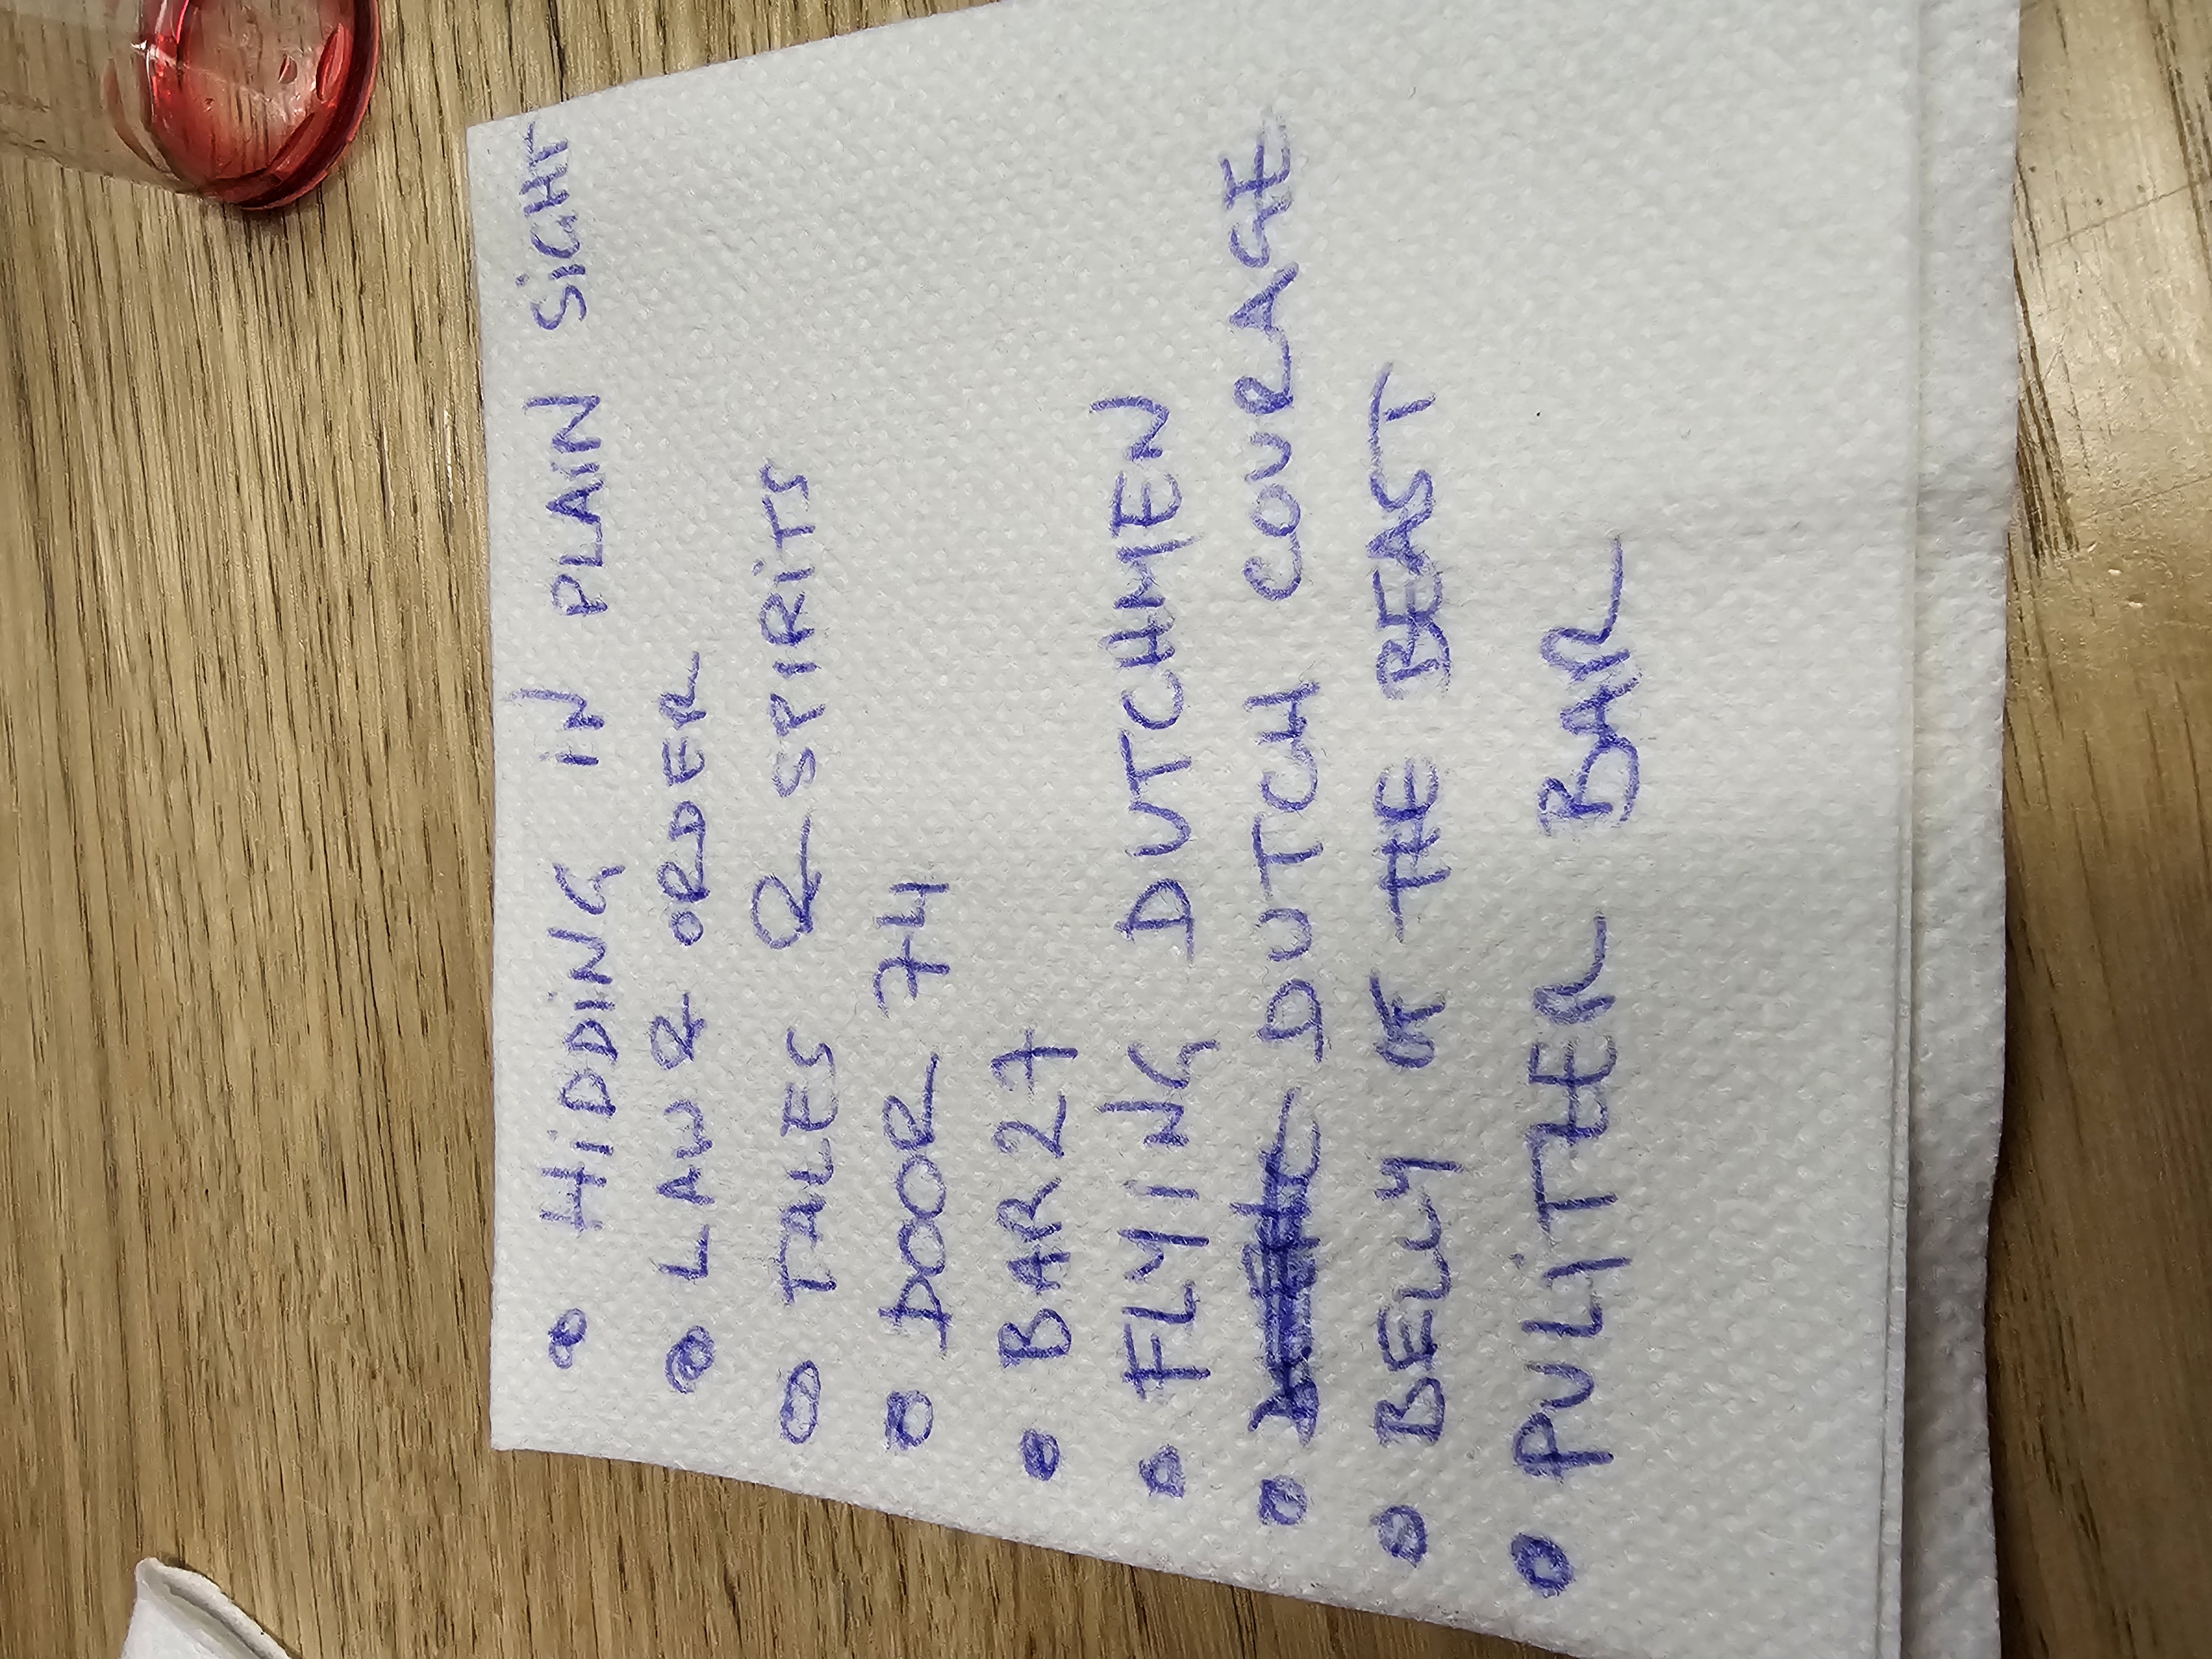 • HiDDiNG iN PLAiN SiGHT
• LAW & ORDER
• TALES & SPIRiTS
• DOOR 74
• BAR 27
• FLYiNG DUTCHMEN
• DUTCH COURAGE
• BELLY OF THE BEAST
• PULiTTHER BAR